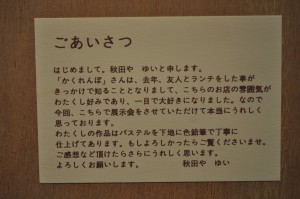 ごあいさつ
はじめまして。秋田や ゆいと申します。
「かくれんぼ」さんは、去年、友人とランチをした事が
きっかけで知ることとなりまして、こちらのお店の雰囲気が
わたくし好みであり、一目で大好きになりました。なので
今回、こちらで展示会をさせていただけて本当にうれしく
思っております。
わたくしの作品はパステルを下地に色鉛筆で丁寧に
仕上げてあります。もしよろしかったらご覧くださいませ。
ご感想など頂けたらさらにうれしく思います。
よろしくお願いします。 秋田や ゆい